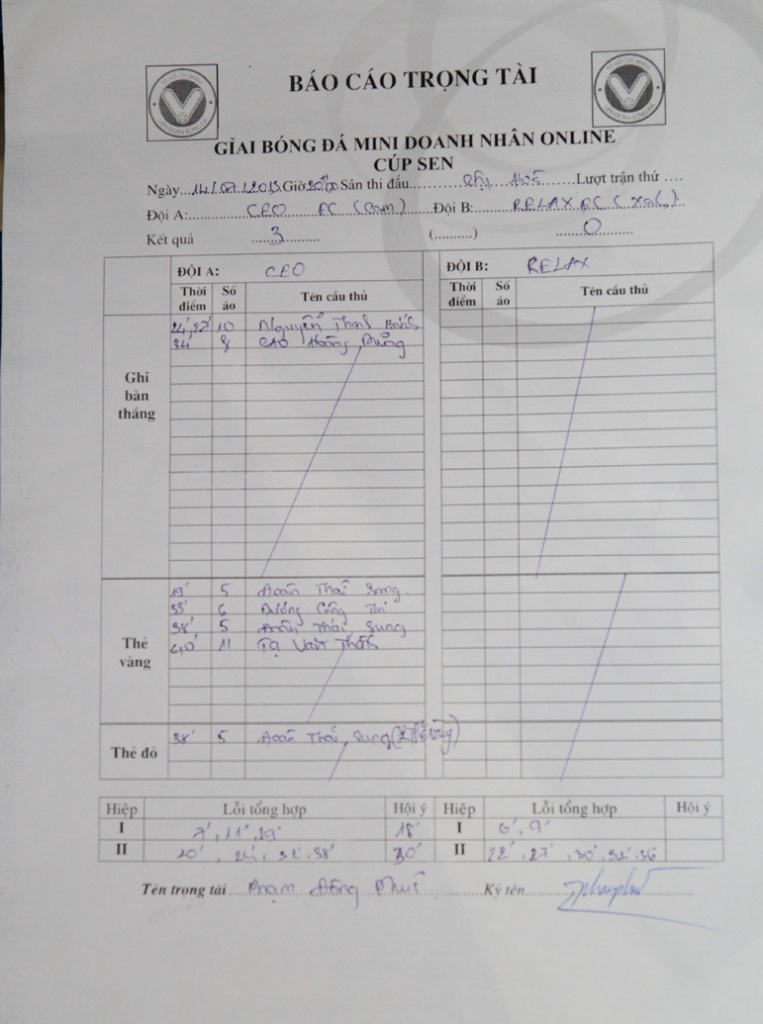 BÁO CÁO TRỌNG TÀI
GIẢI BÓNG ĐÁ MINI DOANH NHÂN ONLINE
CÚP SEN
Ngày 14/07/2013 Giờ 20h00 Sân thi đấu........ ........Lượt trận thứ ....
Đội A: CEO FC (Cam) Đội B: RELAX FC (Xanh)
Kết quả 3 (..........) 0
ĐỘI A: CEO ĐỘI B: RELAX
Thời điểm Số áo Tên cầu thủ Thời điểm Số áo Tên cầu thủ
Ghi bàn thắng
24', 27' 10 Nguyễn Thanh
34' 8 CAO Hoàng
Thẻ vàng
19' 5 Đoàn Thái Sung
35' 6 Dương Công
38' 5 Đoàn Thái Sung
40' 11 Tạ Văn
Thẻ đỏ
38' 5 Đoàn Thái Sung
Hiệp Lỗi tổng hợp Hội ý Hiệp Lỗi tổng hợp Hội ý
I 7', 11', 19' 18' I 6', 9'
II 20', 24', 32', 38' 30' II 22', 27', 30', 36
Tên trọng tài Phạm Đông Phú Ký tên